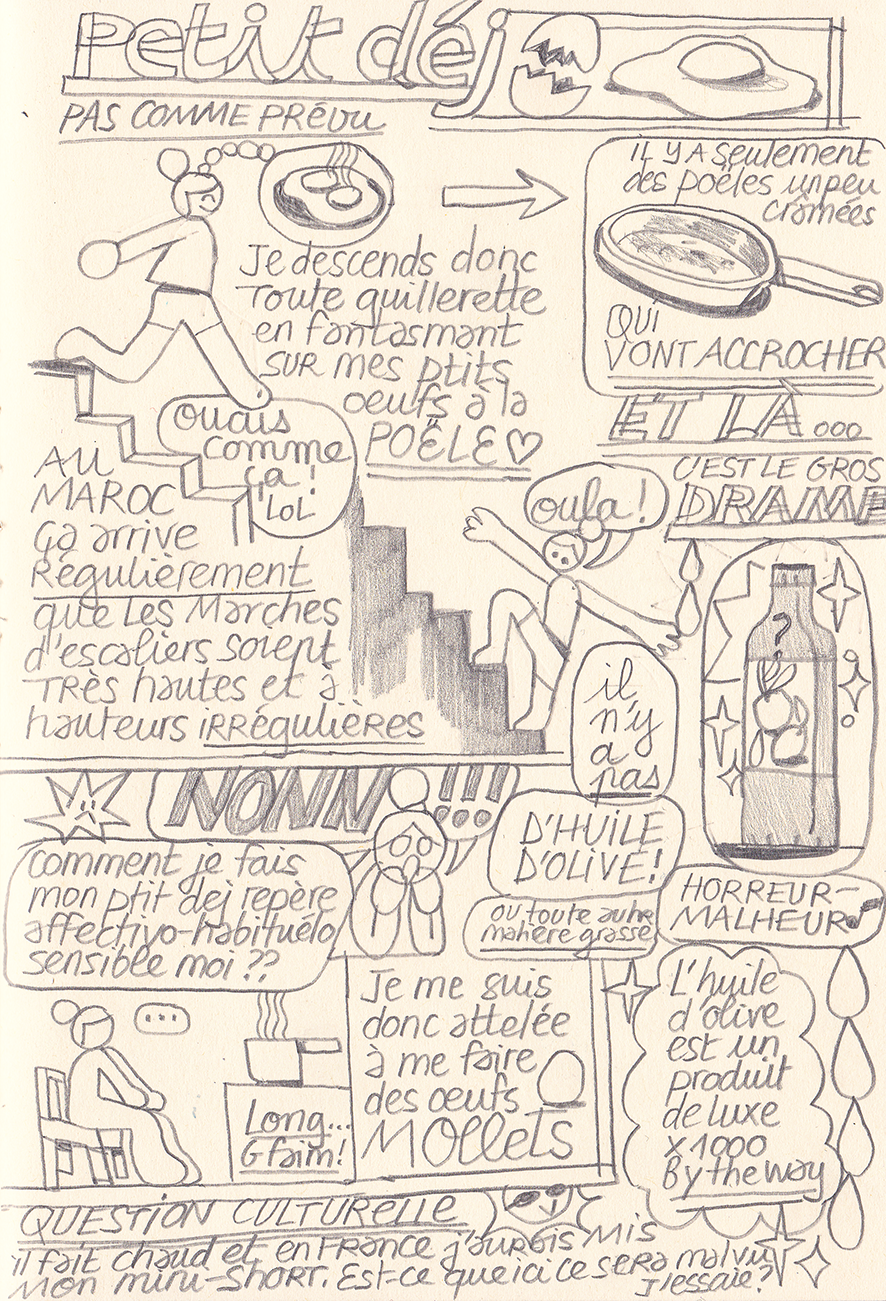 Petit déj
PAS COMME PRÉVU
Je descends donc
toute guillerette
en fantasmant
SUR mes ptits
oeufs à la
POËLE♡
IL Y A seulement
des poëles un peu
crâmées
QUI
VONT ACCROCHER
ouais
comme
ça !
LOL
AU
MAROC
ça arrive
Régulièrement
que Les Marches
d'escaliers soient
TRÈS hautes et à
hauteurs iRRÉgulières
ET LA...
C'EST LE GROS
DRAME
oula !
?
il
n'y
a
pas
D'HUILE
D'OLIVE!
ou toute autre
matière grasse
HORREUR-
MALHEUR
NONN !!!
comment je fais
mon ptit dej repère
affectivo-habituélo
sensible moi ??
...
Long...
G faim!
Je me suis
donc attelée
à me faire
des œufs
MOLLETS
L'huile
d'olive
est un
produit
de luxe
x1000
By the way
QUESTION CULTURELLE
il fait chaud et en FRANCE j'aurais Mis
Mon mini-SHORT. Est-ce que ici ce sera mal vu
J'essaie?